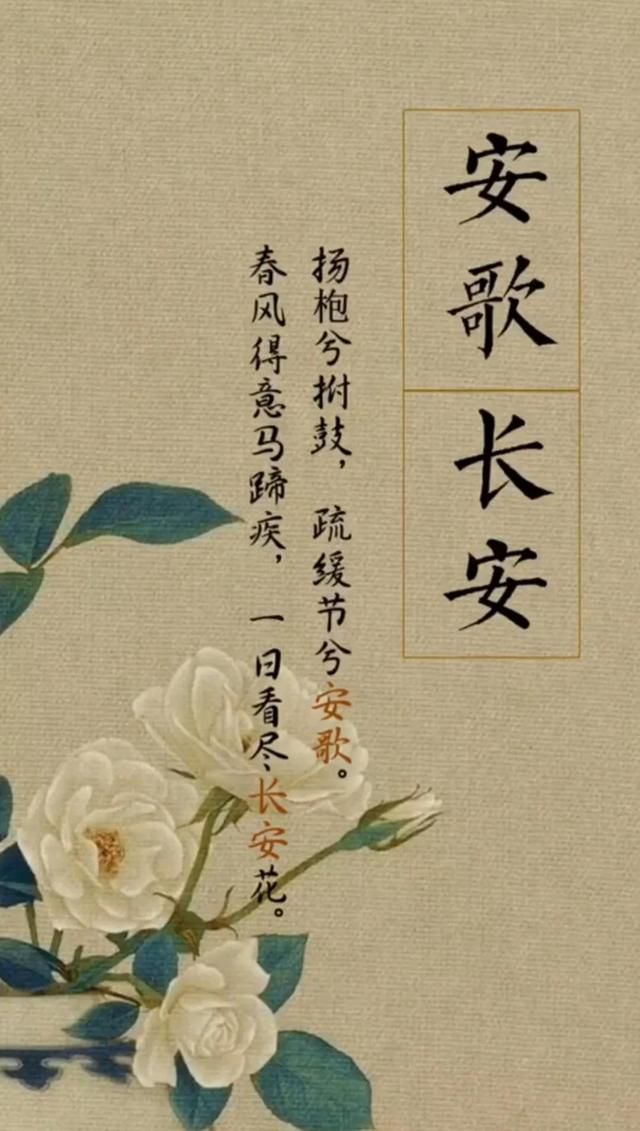 安歌长安
扬枹兮拊鼓，疏缓节兮安歌。
春风得意马蹄疾，一日看尽长安花。